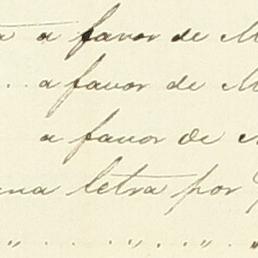 a a favor de M
.. a favor de M
a favor de
una letra por
„ .. .. „ .. „ .. „